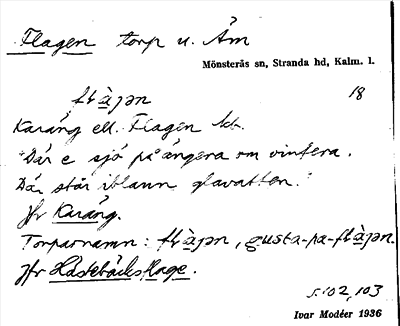 Flagen torp u. Åm
Mönsterås sn, Stranda hd, Kalm. l.
flàjən 18
Karäng ell. Flagen
"Där e sjö på ängera om vintera.
Där står iblann glavatten."
Jfr Karäng.
Torparnamn: flàjən, gusta-pa-flàjən.
Jfr Hästebäckshage.
s. 102, 103
Ivar Modéer 1936